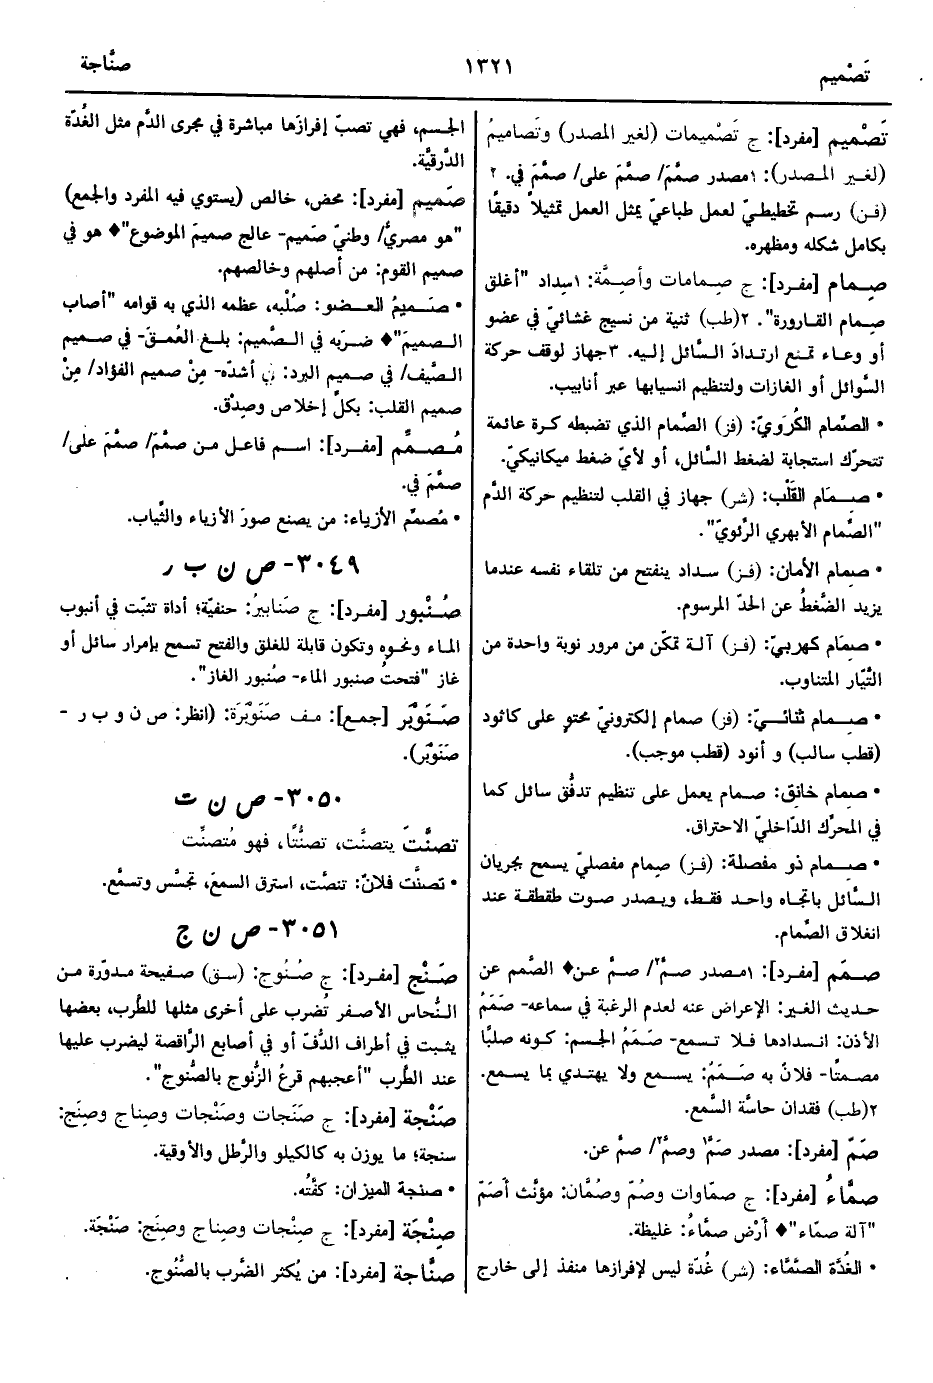 تَصْميم
١٣٢١
صنَّاجة
تَصْميم [مفرد]: ج تَصْميمات (لغير المصدر) وتَصاميمُ
(لغير المصدر): ١مصدر صمَّمَ/ صمَّمَ على/ صمَّمَ في. ٢
(فن) رسم تخطيطيّ لعمل طباعيّ يمثل العمل تمثيلاً دقيقًا
بكامل شكله ومظهره.
صِمام [مفرد]: ج صِمامات وأصِمَّة: ١سِداد "أغلق
صِمام القارورة". ٢(طب) ثنية من نسيج غشائيّ في عضو
أو وعاء تمنع ارتدادَ السَّائل إليه. ٣جهاز لوقف حركة
السَّوائل أو الغازات ولتنظيم انسيابها عبر أنابيب.
• الصِّمام الكُرَويّ: (فز) الصِّمام الذي تضبطه كرة عائمة
تتحرّك استجابة لضغط السَّائل، أو لأيّ ضغط ميكانيكيّ.
• صِمَام القَلْب: (شر) جهاز في القلب لتنظيم حركة الدَّم
"الصِّمام الأبهري الرِّئويّ".
• صِمام الأمان: (فز) سداد ينفتح من تلقاء نفسه عندما
يزيد الضَّغطُ عن الحدّ المرسوم.
• صِمَام كهربيّ: (فز) آلة تمكّن من مرور نوبة واحدة من
التَّيَّار المتناوب.
• صِمام ثنائيّ: (فز) صمام إلكترونيّ محتوٍ على كاثود
(قطب سالب) و أنود (قطب موجب).
• صِمام خانق: صمام يعمل على تنظيم تدفّق سائل كما
في المحرّك الدّاخليّ الاحتراق.
• صِمام ذو مفصلة: (فز) صِمام مفصليّ يسمح بجريان
السَّائل باتجاه واحد فقط، ويصدر صوت طقطقة عند
انغلاق الصِّمام.
صَمَم [مفرد]: ١مصدر صمَّ٢/ صمَّ عن♦ الصَّمم عن
حديث الغير: الإعراض عنه لعدم الرغبة في سماعه- صَمَمُ
الأذن: انسدادها فلا تسمع- صَمَمُ الجسم: كونه صلبًا
مصمتًا- فلانٌ به صَمَمٌ: يسمع ولا يهتدي بما يسمع.
٢(طب) فقدان حاسَّة السَّمع.
صَمّ [مفرد]: مصدر صَمَّ١ وصمَّ٢/ صمَّ عن.
صمَّاءُ [مفرد]: ج صمَّاوات وصُمّ وصُمَّان: مؤنَّث أصَمّ
"آلة صمّاء"♦ أرْض صمَّاءُ: غليظة.
• الغُدَّة الصَّمَّاء: (شر) غُدّة ليس لإفرازها منفذ إلى خارج
الجسم، فهي تصبّ إفرازها مباشرة في مجرى الدَّم مثل الغُدّة
الدَّرقيَّة.
صَميم [مفرد]: محض، خالص (يستوي فيه المفرد والجمع)
"هو مصريٌّ/ وطنيّ صَميم- عالج صميمَ الموضوع"♦ هو في
صميم القوم: من أصلهم وخالصهم.
• صَميمُ العضو: صُلْبه، عظمه الذي به قوامه "أصاب
الصميمَ"♦ ضرَبه في الصَّميم: بلغ العُمقَ- في صميم
الصَّيف/ في صميم البرد: في أشدّه- مِنْ صميم الفؤاد/ مِنْ
صميم القلب: بكلّ إخلاص وصِدْق.
مُصمِّم [مفرد]: اسم فاعل من صمَّمَ/ صمَّمَ على/
صمَّمَ في.
• مُصمِّم الأزياء: من يصنع صورَ الأزياء والثِّياب.
٣٠٤٩- ص ن ب ر
صُنْبور [مفرد]: ج صَنابيرُ: حنفيّة؛ أداة تثبّت في أنبوب
الماء ونحوه وتكون قابلة للغلق والفتح تسمح بإمرار سائل أو
غاز "فتحتُ صنبور الماء- صُنبور الغاز".
صَنَوْبَر [جمع]: مف صَنَوْبَرَة: (انظر: ص ن و ب ر -
صَنَوْبَر).
٣٠٥٠- ص ن ت
تصنَّتَ يتصنَّت، تصنُّتًا، فهو مُتصنِّت
• تصنَّت فلانٌ: تنصَّت، استرق السمعَ، تجسَّس وتسمَّع.
٣٠٥١- ص ن ج
صَنْج [مفرد]: ج صُنُوج: (سق) صفيحة مدوّرة من
النُّحاس الأصفر تُضرب على أخرى مثلها للطَّرب، بعضها
يثبت في أطراف الدُّفّ أو في أصابع الرَّاقصة ليضرب عليها
عند الطَّرب "أعجبهم قرعُ الزّنوج بالصُّنوج".
صَنْجة [مفرد]: ج صَنَجات وصَنْجات وصِناج وصِنَج:
سنجة؛ ما يوزن به كالكيلو والرِّطل والأوقية.
• صنجة الميزان: كفَّتُه.
صِنْجَة [مفرد]: ج صِنْجات وصِناج وصِنَج: صَنْجَة.
صنَّاجة [مفرد]: من يُكثر الضَّرب بالصُّنُوج.